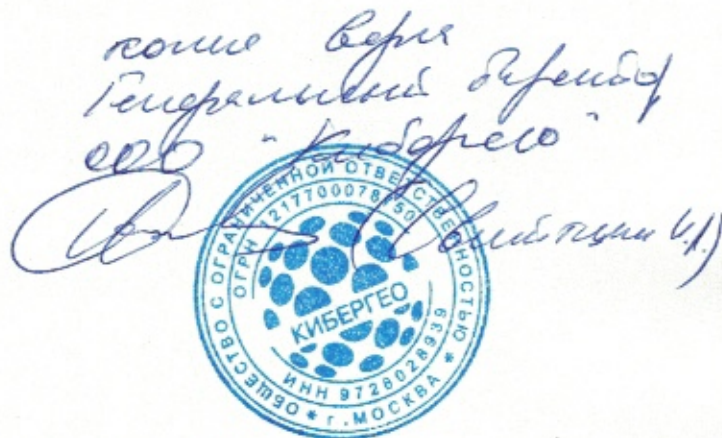 копия верна
Генеральный директор
ООО "Кибергео"
ОБЩЕСТВО С ОГРАНИЧЕННОЙ ОТВЕТСТВЕННОСТЬЮ * г. МОСКВА *
ОГРН 1217700078750
КИБЕРГЕО
ИНН 9728028939